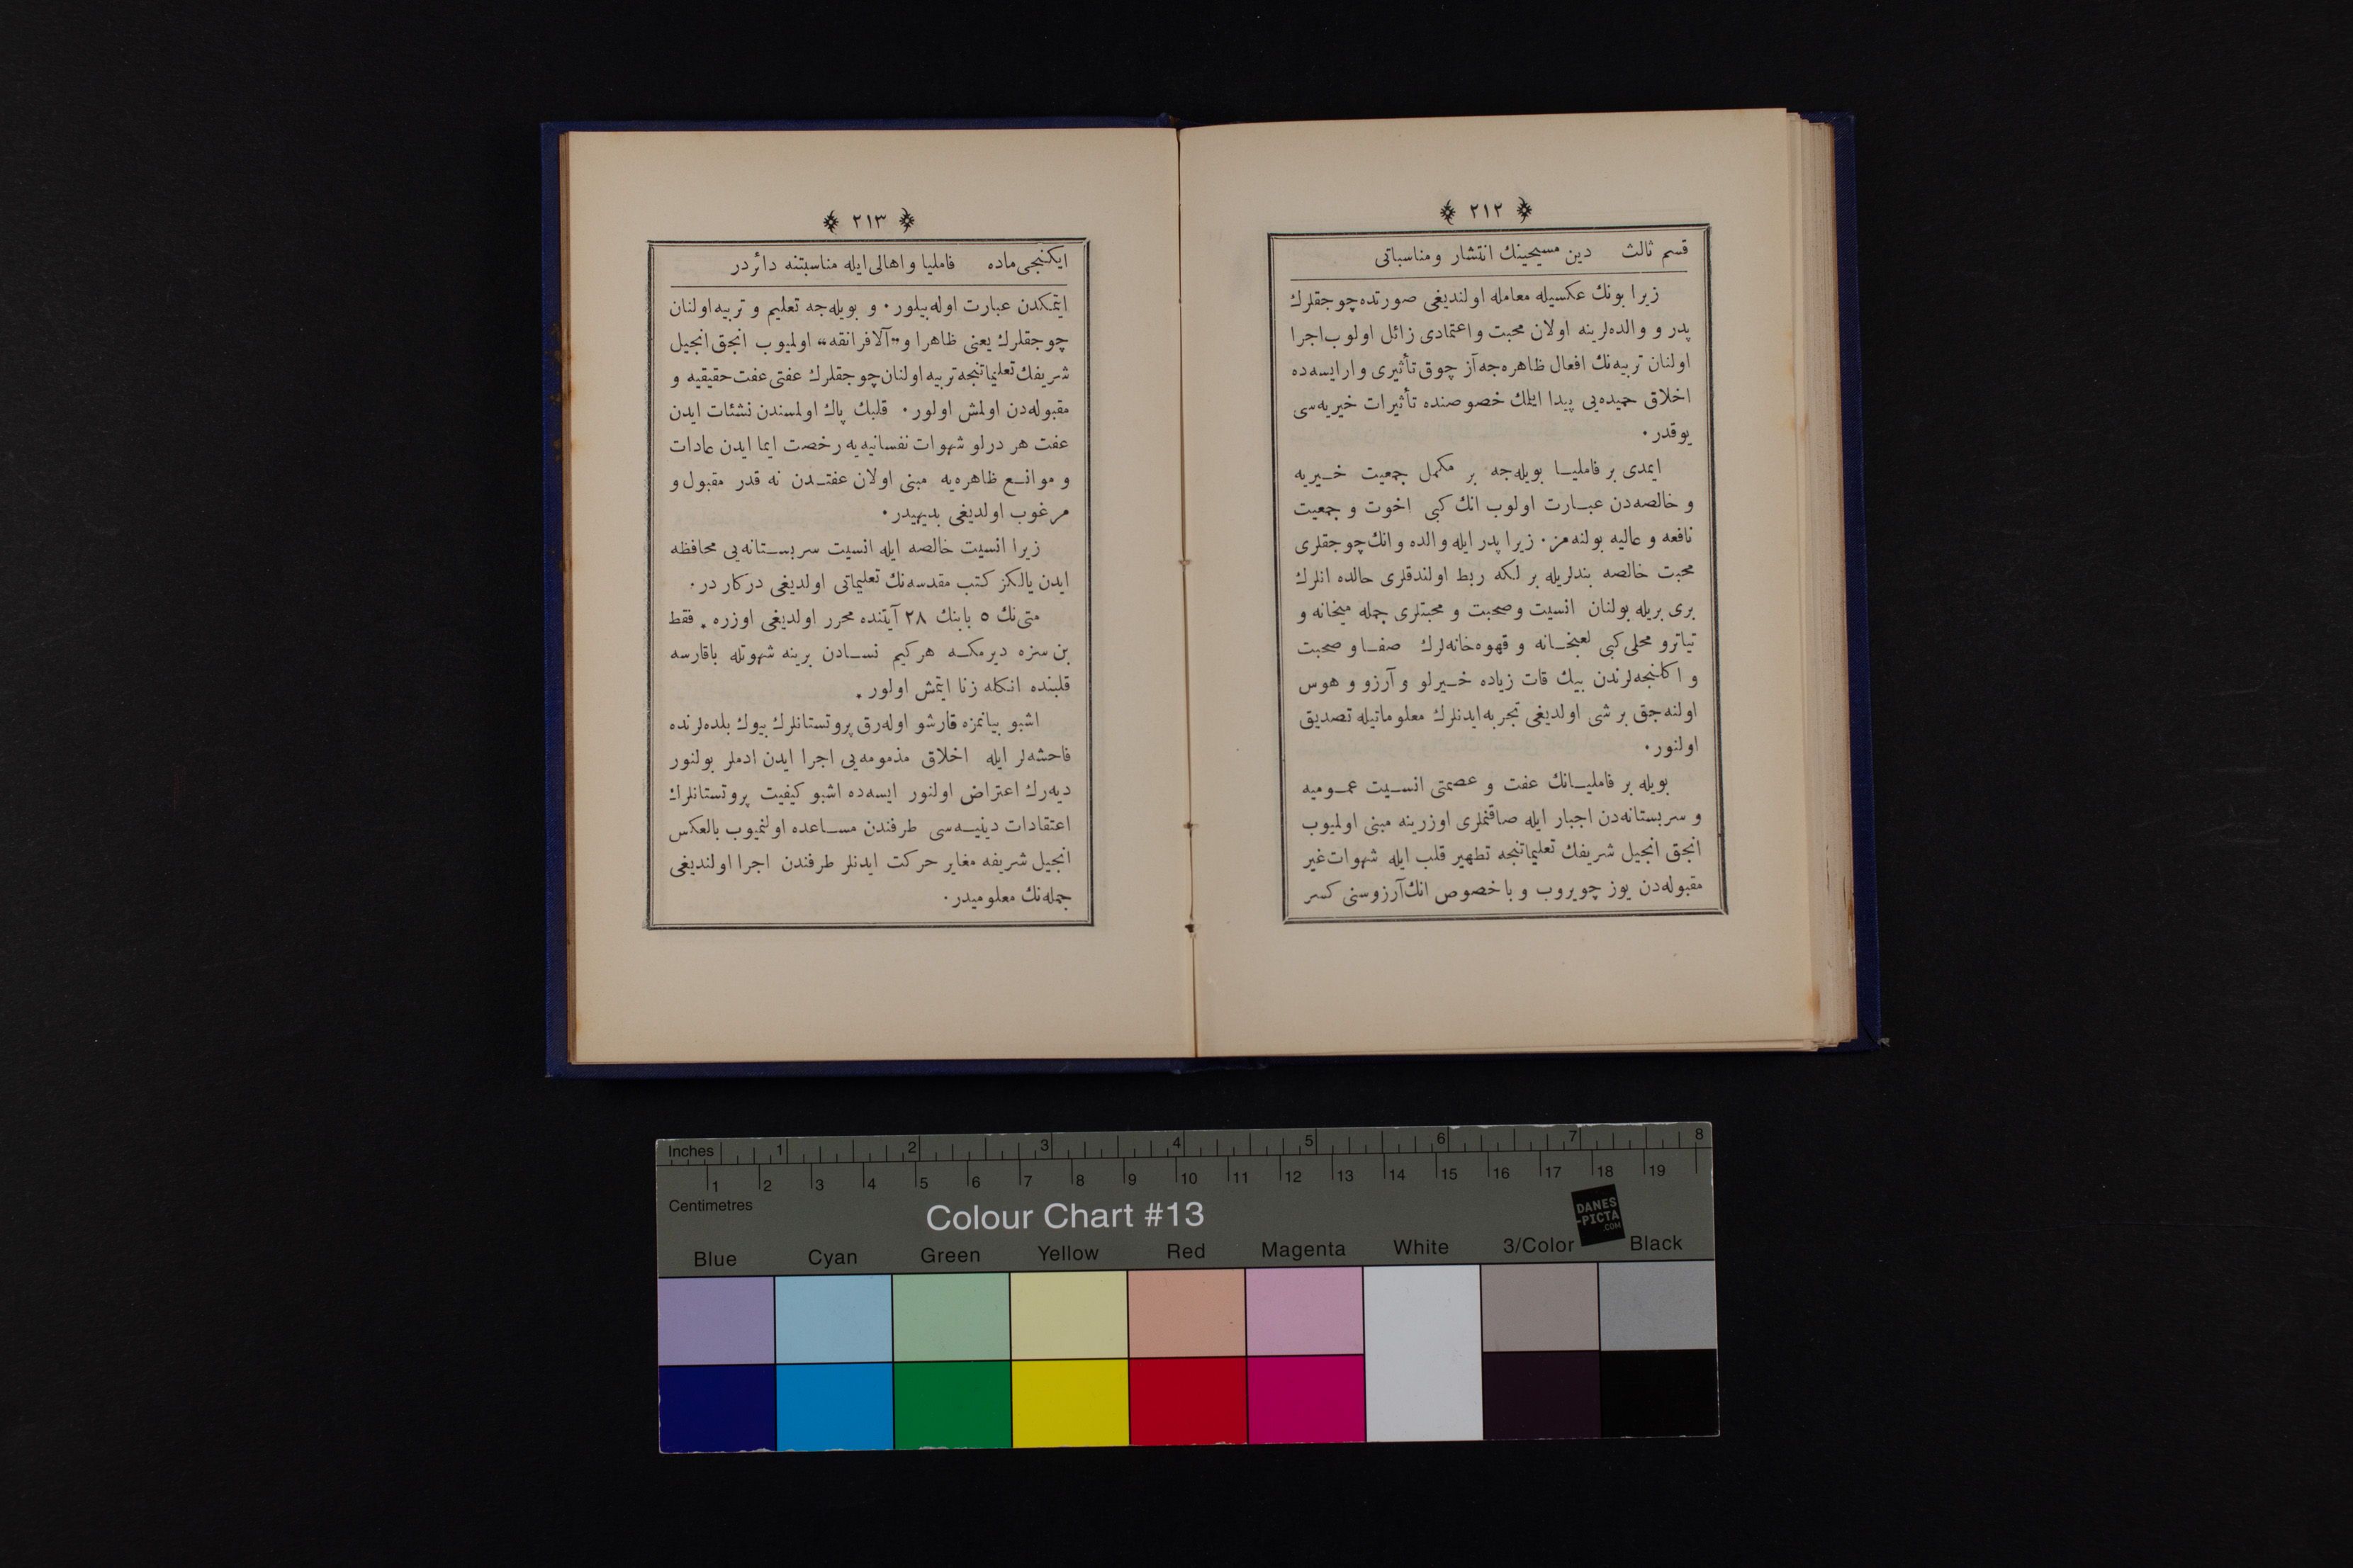 ﴿ ٢١٢ ﴾
قسم ثالث دین مسیحینك انتشار ومناسباتی
زیرا بونك عکسیله معامله اولندیغی صورتده چوجقلرك
پدر و والده‌لرینه اولان محبت واعتمادی زائل اولوب اجرا
اولنان تربیه‌نك افعال ظاهره‌جه آز چوق تأثیری وار ایسه‌ده
اخلاق حمیده‌یی پیدا ایلك خصوصنده تأثیرات خیریه‌سی
یوقدر·
ایمدی بر فاملیا بویله‌جه بر مکمل جمعیت خیریه
و خالصه‌دن عبارت اولوب انك کبی اخوت و جمعیت
نافعه و عالیه بولنه‌مز· زیرا پدر ایله والده وانك چوجقلری
محبت خالصه بندلریله بر لکه ربط اولندقلری حالده انلرك
بری بریله بولنان انسیت وصحبت و محبتلری جمله میخانه و
تیاترو محلی کبی لعبخانه و قهوه‌خانه‌لرك صفا و صحبت
و اکلنجه‌لرندن بیك قات زیاده خیرلو و آرزو و هوس
اولنه‌جق بر شی اولدیغی تجربه ایدنلرك معلوماتیله تصدیق
اولنور·
بویله بر فاملیانك عفت و عصمتی انسیت عمومیه
و سربستانه‌دن اجبار ایله صاقنملری اوزرینه مبنی اولمیوب
انجق انجیل شریفك تعلیماتنجه تطهیر قلب ایله شهوات غیر
مقبوله‌دن یوز چویروب و باخصوص انك آرزوسنی کسر
﴿ ٢١٣ ﴾
ایکنجی ماده فاملیا واهالی ایله مناسبتنه دائردر
ایتمکدن عبارت اوله‌بیلور· و بویله‌جه تعلیم و تربیه اولنان
چوجقلرك یعنی ظاهرا و „آلافرانقه“ اولمیوب انجق انجیل
شریفك تعلیماتنجه تربیه اولنان چوجقلرك عفتی عفت حقیقیه و
مقبوله‌دن اولمش اولور· قلبك پاك اولمسندن نشئات ایدن
عفت هر درلو شهوات نفسانیه‌یه رخصت ایما ایدن عادات
و موانع ظاهره‌یه مبنی اولان عفتدن نه قدر مقبول و
مرغوب اولدیغی بدیهیدر·
زیرا انسیت خالصه ایله انسیت سربستانه‌یی محافظه
ایدن یالکز کتب مقدسه‌نك تعلیماتی اولدیغی درکار در·
متی‌نك ٥ بابنك ٢٨ آیتنده محرر اولدیغی اوزره . فقط
بن سزه دیرمکه هر کیم نسادن برینه شهوتله باقارسه
قلبنده انکله زنا ایتمش اولور.
اشبو بیانمزه قارشو اوله‌رق پروتستانلرك بیوك بلده‌لرنده
فاحشه‌لر ایله اخلاق مذمومه‌یی اجرا ایدن ادملر بولنور
دیه‌رك اعتراض اولنور ایسه‌ده اشبو کیفیت پروتستانلرك
اعتقادات دینیه‌سی طرفندن مساعده اولنمیوب بالعکس
انجیل شریفه مغایر حرکت ایدنلر طرفندن اجرا اولندیغی
جمله‌نك معلومیدر·
Inches 1 2 3 4 5 6 7 8
1 2 3 4 5 6 7 8 9 10 11 12 13 14 15 16 17 18 19
Centimetres
Colour Chart #13
DANES
-PICTA
.COM
Blue Cyan Green Yellow Red Magenta White 3/Color Black